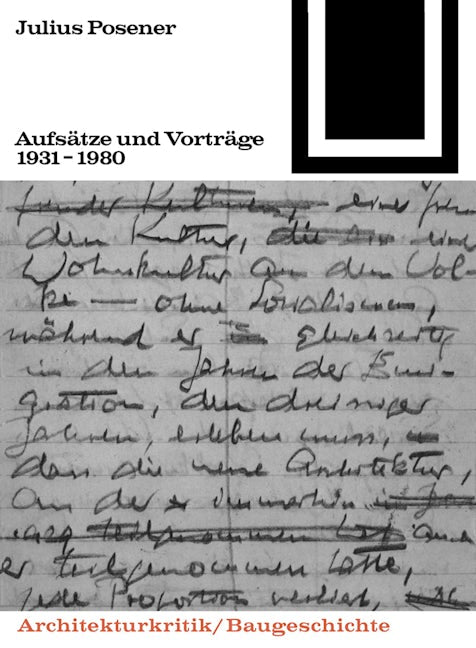 Julius Posener
Aufsätze und Vorträge
1931 – 1980
einer
den Kultur, die eine
Wohnkultur an dem Vol-
ke — ohne Sozialismus,
während er gleichzeitig
in den Jahren der Emi-
gration, den dreissiger
Jahren, erleben muss,
dass die neue Architektur,
an der er immerhin
teilgenommen hat auch
er teilgenommen hatte,
jede Proportion verliert,
Architekturkritik/Baugeschichte